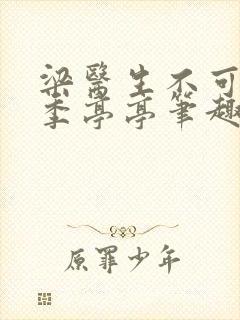 梁医生不可
季亭亭笔趣
原罪少年